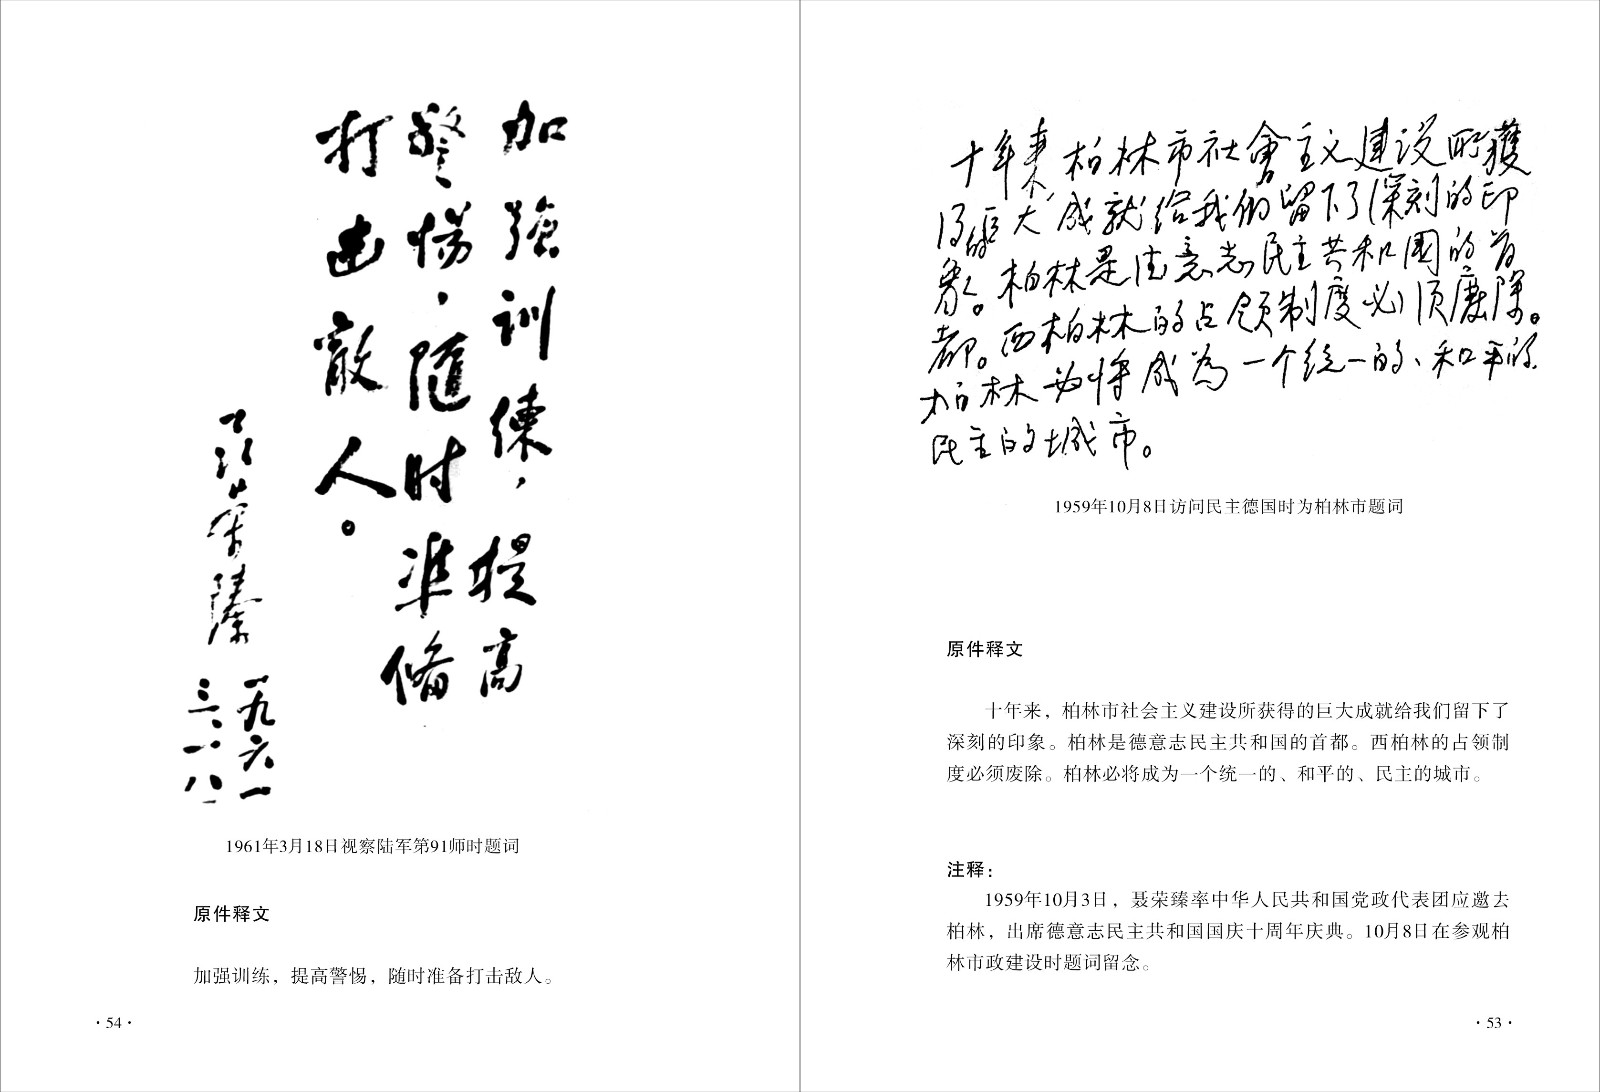 十年来柏林市社會主义建设所獲
得的巨大成就给我们留下了深刻的印
象。柏林是德意志民主共和國的首
都。西柏林的占领制度必须廢除。
柏林必将成為一个统一的、和平的
民主的城市。
1959年10月8日访问民主德国时为柏林市题词
原件释文
十年来，柏林市社会主义建设所获得的巨大成就给我们留下了
深刻的印象。柏林是德意志民主共和国的首都。西柏林的占领制
度必须废除。柏林必将成为一个统一的、和平的、民主的城市。
注释：
1959年10月3日，聂荣臻率中华人民共和国党政代表团应邀去
柏林，出席德意志民主共和国国庆十周年庆典。10月8日在参观柏
林市政建设时题词留念。
·53·
加強训練，提高
警惕，隨时准備
打击敵人。
聂荣臻
一九六一
三、一八
1961年3月18日视察陆军第91师时题词
原件释文
加强训练，提高警惕，随时准备打击敌人。
·54·